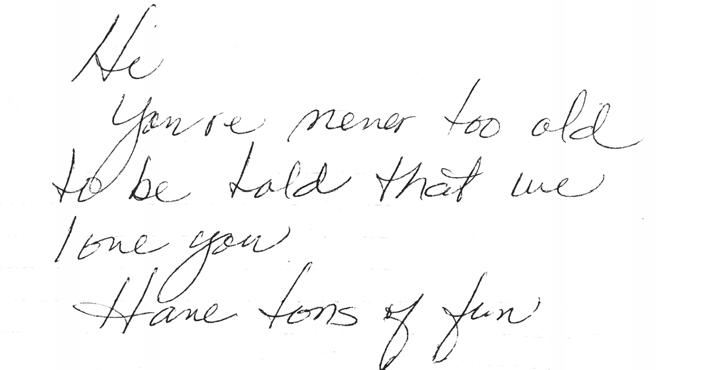 Hi
You're never too old
to be told that we
love you
Have tons of fun